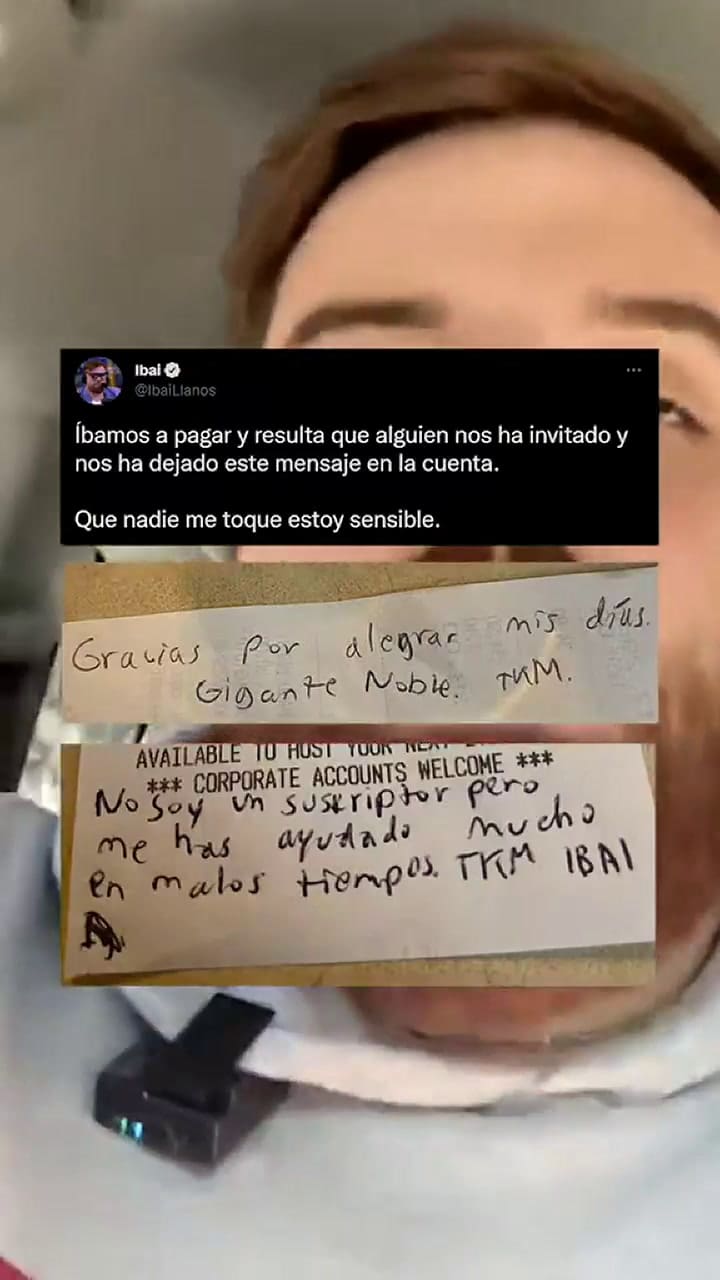 Ibai
@IbaiLlanos
Íbamos a pagar y resulta que alguien nos ha invitado y
nos ha dejado este mensaje en la cuenta.
Que nadie me toque estoy sensible.
Gracias por alegrar mis días.
Gigante Noble. TKM.
AVAILABLE TO HOST YOUR NEXT
*** CORPORATE ACCOUNTS WELCOME ***
No soy un suskriptor pero
me has ayudado mucho
en malos tiempos. TKM IBAI